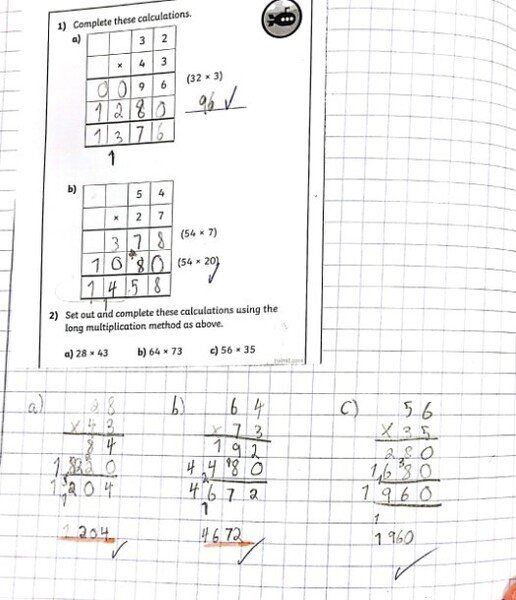 1) Complete these calculations.
a)
3 2
× 4 3
0 0 9 6 (32 × 3)
96 ✓
1 2 8 0
1 3 7 6
1
b)
5 4
× 2 7
3 7 8 (54 × 7)
1 0 8 0 (54 × 20) ✓
1 4 5 8
1
2) Set out and complete these calculations using the
long multiplication method as above.
a) 28 × 43 b) 64 × 73 c) 56 × 35
a) 28 b) 64 c) 56
× 43 × 73 × 35
84 192 280
0 4480 1680
1204 4672 1960
1 1 1
1204 4672 1960
✓ ✓ ✓